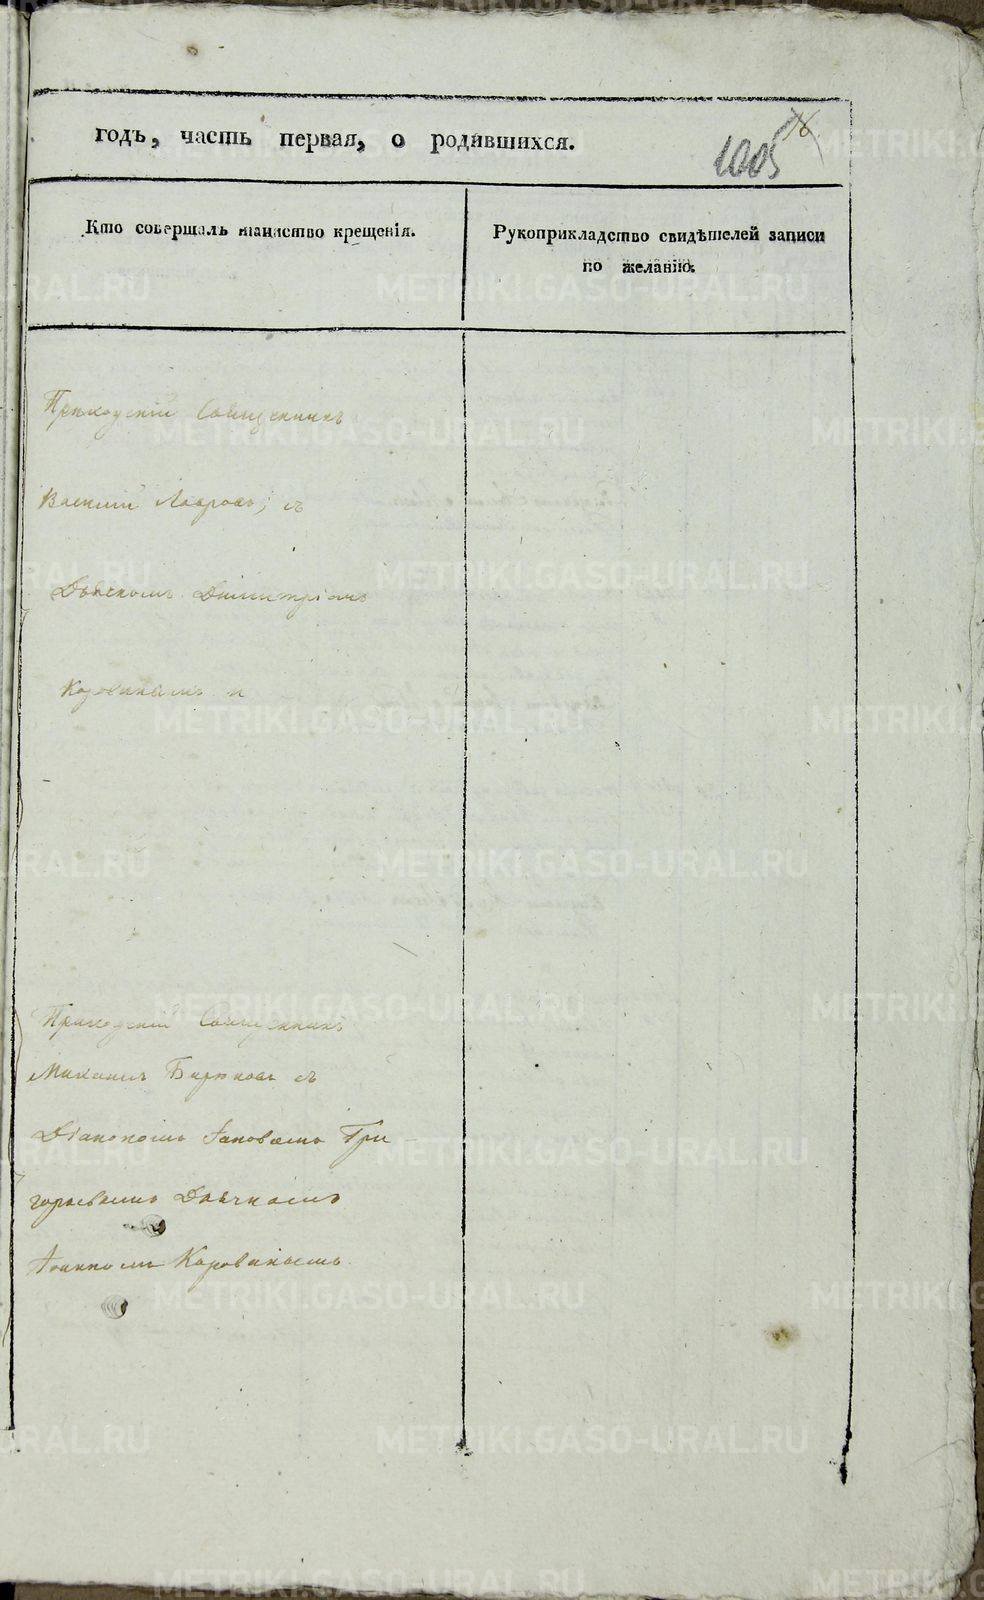 годъ, часть первая, о родившихся.
1005
Кто совершалъ таинство крещенія.
Рукоприкладство свидѣтелей записи
по желанію.
Приходскій Священникъ
Василій Лавровъ, съ
Дьячкомъ Димитріемъ
Коровинымъ и
Приходскій Священникъ
Михаилъ Бирюковъ съ
Діакономъ Іаковомъ Гри
горьевымъ Дьячкомъ
Іоанномъ Коровинымъ
METRIKI.GASO-URAL.RU